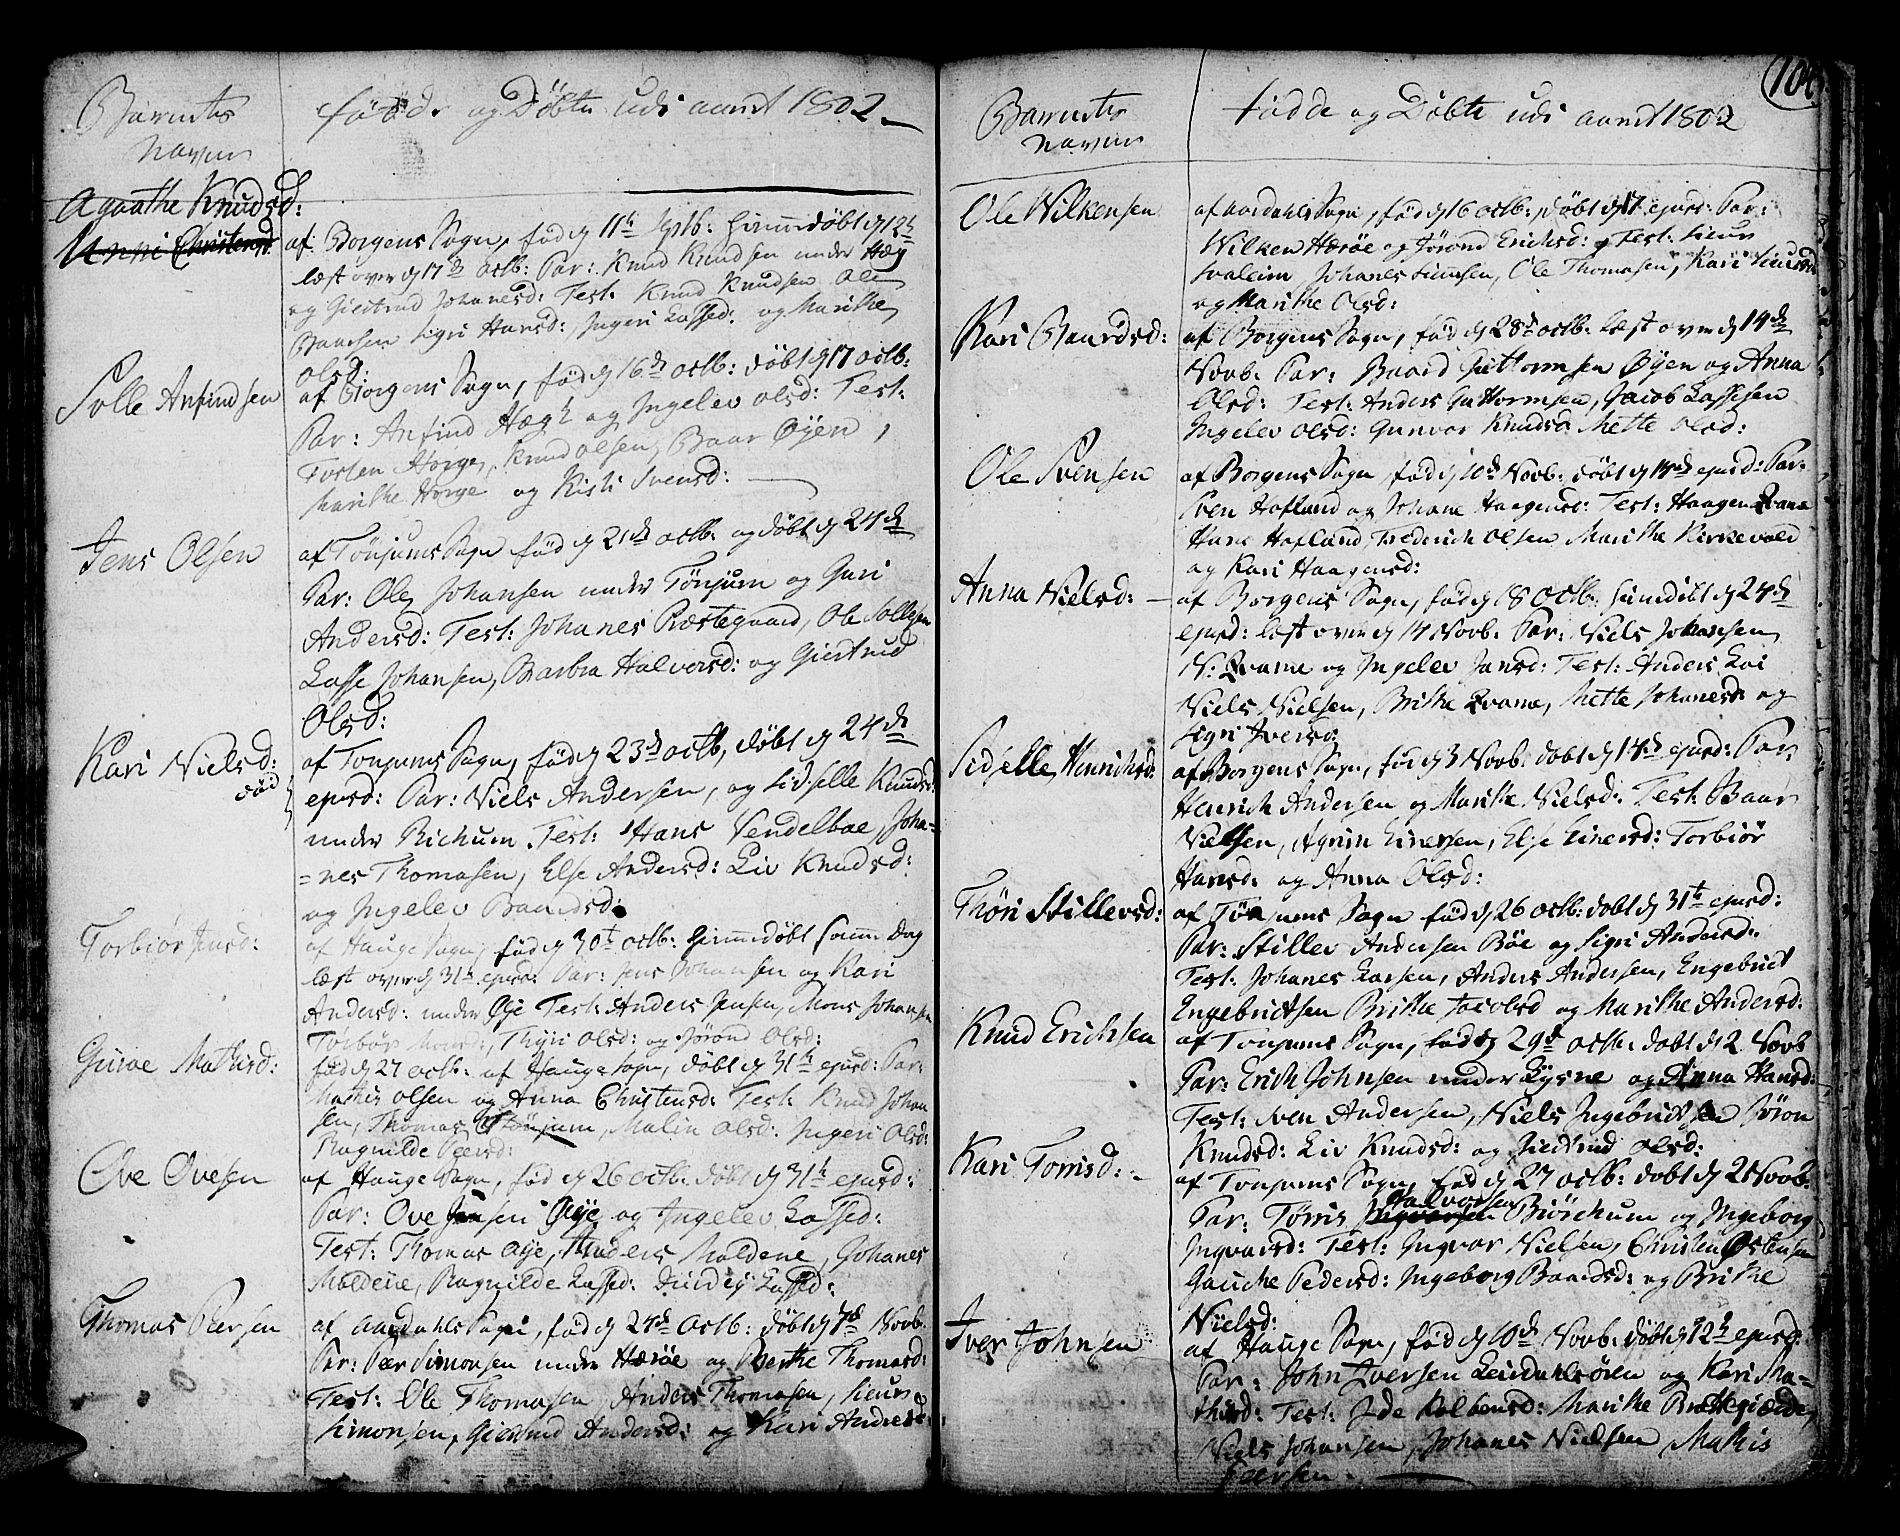 Barnets
Navne
fødde og Døbte udi aaret 1802
Agathe Knudsd:
Unni Christensd:
af Borgens Sogn, fød d 11te Septb: hiemmedøbt d 12t
læst over d 17de octb: Par: Knud Knudsen under Hæg
og Giertrud Johanesd: Test: Knud Knudsen Ole
Baarsen Sigri Hansd: Ingeri Lassed: og Marithe
Olsd:
Solle Anfindsen
af Borgens Sogn, fød d 16de octb: døbt d 17 octb:
Par: Anfind Hægh og Ingelev Olsd: Test:
Torsten Horge, Knud Olsen, Baar Øyen,
Marithe Horge og Kisti Svensd:
Jens Olsen
af Tönjums Sogn fød d 21de octb: og døbt d 24de
Par: Ole Johansen under Tönjum og Guri
Andersd: Test: Johanes Præstegaard, Ole Sollesen
Lasse Johansen, Barbra Halvorsd: og Giertrud
Olsd:
Kari Nielsd:
død
af Tonjums Sogn, fød d 23de octb, døbt d 24de
ejusd: Par: Niels Andersen, og Sidselle Knudsd:
under Richum. Test: Hans Vendelboe, Joha=
=nes Thomasen, Else Andersd: Liv Knudsd:
og Ingelev Baardsd:
Torbiør Jensd:
af Hauge Sogn, fød d 30t octb: hiemmedøbt samme Dag
læst over d 31t ejusd: Par: Jens Johansen og Kari
Andersd: under Øye Test: Anders Jensen, Mons Johansen
Torbør Monsd:, Thyri Olsd: og Jørond Olsd:
Guroe Mathisd:
fød d 27 octb: af Hauge Sogn, døbt d 31te ejusd: Par:
Mathis Olsen og Anna Christensd: Test: Knud Johan
sen, Thomas Tönjum, Malin Olsd: Ingeri Olsd:
Ragnilde Peersd:
Ove Ovesen
af Hauge Sogn, fød d 26 octb: døbt d 31te ejusd:
Par: Ove Jensen Øye og Ingelev Lassed:
Test: Thomas Øye, Anders Moldene, Johanes
Moldene, Ragnilde Lassed: Lassed:
Thomas Peersen
af Aardahls Sogn, fød d 24de Octb: døbt d 7de Novb:
Par: Peer Simonsen under Hæreøe og Berthe Thomasd:
Test: Ole Thomasen, Anders Thomasen, Siur
Simonsen, Giertrud Andersd: og Kari Andersd:
106
Barnets
Navne
fødde og Døbte udi aaret 1802
Ole Wilkensen
af Aardahls Sogn, fød d 16 octb:, døbt d 17 ejusd: Par:
Wilken Hæreøe og Jørond Erichsd: Test: Siur
Svalem Johanes Simsen, Ole Thomasen, Kari Siursd
og Marithe Olsd:
Kari Baardsd:
af Borgens Sogn, fød d 28de octb: læst over d 14de
Novb. Par: Baard Guttormsen Øyen og Anna
Olsd: Test: Anders Guttormsen, Jacob Lassesen
Ingelev Olsd: Gunvor Knudsd: Mette Olsd:
Ole Svensen
af Borgens Sogn, fød d 10de Novb: døbt d 14de ejusd: Par:
Sven Hofland og Johane Haagensd: Test: Haagen Qvame
Hans Hofland, Frederich Olsen, Marithe Kirkevold
og Kari Haagensd:
Anna Nielsd:
af Borgens Sogn, fød d 18 Octb: hiemdøbt d 24de
ejusd: læst over d 14 Novb: Par: Niels Johansen
N: Qvame og Ingelev Jansd: Test: Anders Loi
Niels Nielsen, Brithe Qvame, Mette Johanesd: og
Sigri Iversd:
Sidselle Henrichsd:
af Borgens Sogn, fød d 3 Novb: døbt d 14de ejusd: Par:
Henrich Andersen og Marithe Nielsd: Test: Baar
Nielsen, Agrim Einersen, Else Einersd: Torbiør
Hansd: og Anna Olsd:
Thöri Stillevsd:
af Tönjums Sogn fød d 26 octb: døbt d 31te ejusd:
Par: Stillev Andersen Böe og Sigri Andersd:
Test: Johanes Larsen, Anders Andersen, Engebrict
Engebrictsen Brithe Jacobsd og Marithe Andersd:
Knud Erichsen
af Tonjums Sogn, fød d 29de octb: døbt d 2 Novb
Par: Erich Johnsen under Lysne og Anna Hansd:
Test: Sven Andersen, Niels Ingebrictsen Jøron
Knudsd: Liv Knudsd: og Giertrud Olsd:
Kari Torrisd:
af Tonjums Sogn, fød d 27 octb: døbt d 2 Novb:
Halvorsen
Par: Tørris Ingvarsen Biörchum og Ingeborg
Ingvarsd: Test: Ingvar Nielsen, Christen Østensen
Gauche Pedersd: Ingeborg Baardsd: og Brithe
Nielsd:
Iver Johnsen
af Hauge Sogn, fød d 10de Novb: døbt d 12te ejusd:
Par: John Iversen Leirdahlsören og Kari Ma=
thisd: Test: Ide Kolbensd: Marithe Brathgiærde,
Niels Johansen, Johanes Nielsen Mathis
Peersen.